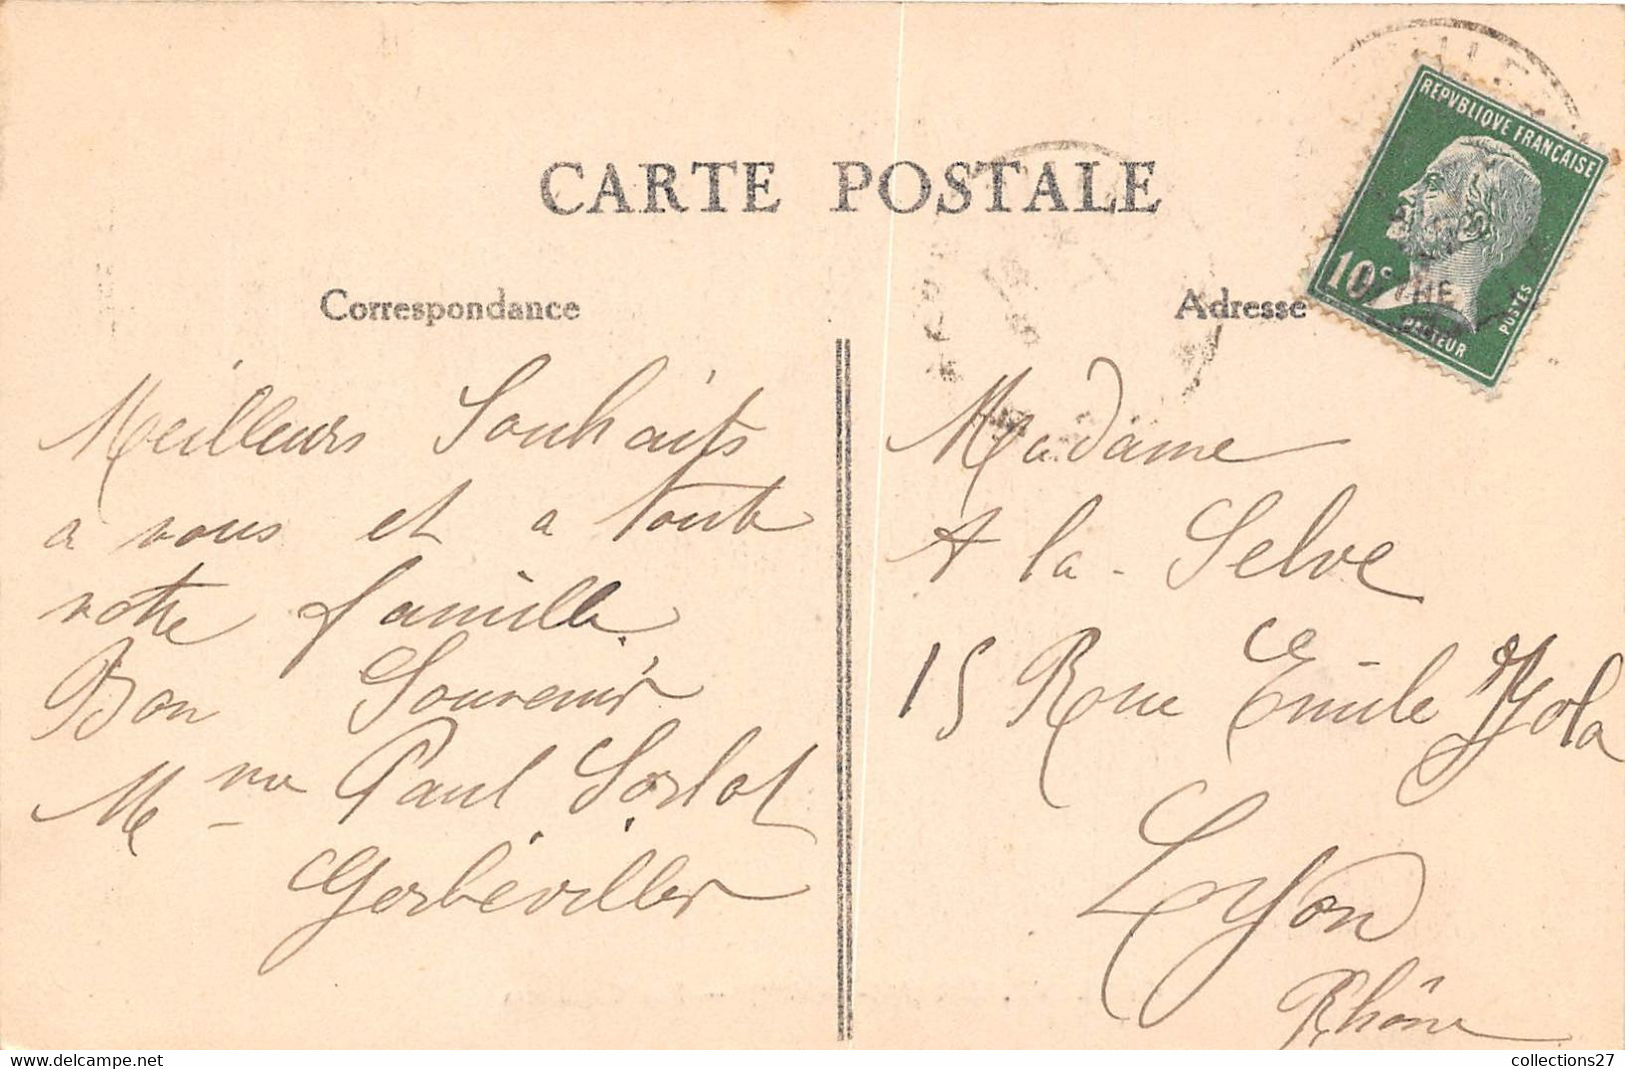 CARTE POSTALE
Correspondance
Meilleurs Souhaits
a vous et a toute
votre famille.
Bon Souvenir
Mme Paul Sorlot
Gerbéviller
REPVBLIQVE FRANÇAISE
10c
POSTES
PASTEUR
Adresse
Madame
A la - Selve
15 Rue Emile Zola
Lyon
Rhône
collections27